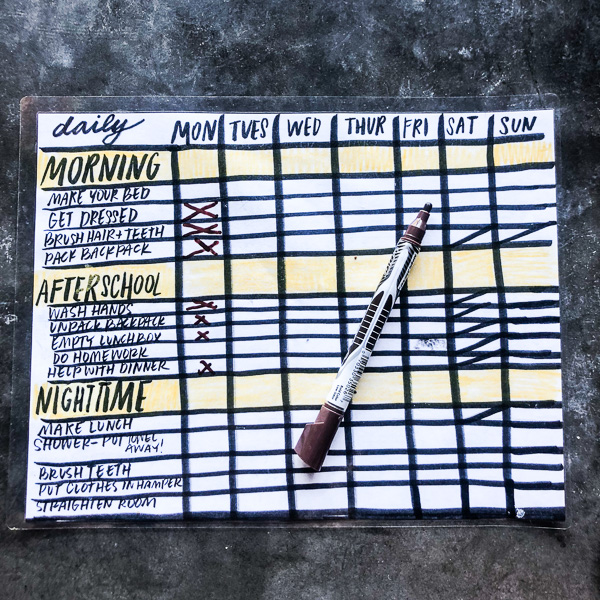 daily MON TUES WED THUR FRI SAT SUN
MORNING
MAKE YOUR BED
GET DRESSED
BRUSH HAIR + TEETH
PACK BACKPACK
AFTERSCHOOL
WASH HANDS
UNPACK BACKPACK
EMPTY LUNCHBOX
DO HOMEWORK
HELP WITH DINNER
NIGHTTIME
MAKE LUNCH
SHOWER - PUT TOWEL
AWAY!
BRUSH TEETH
PUT CLOTHES IN HAMPER
STRAIGHTEN ROOM